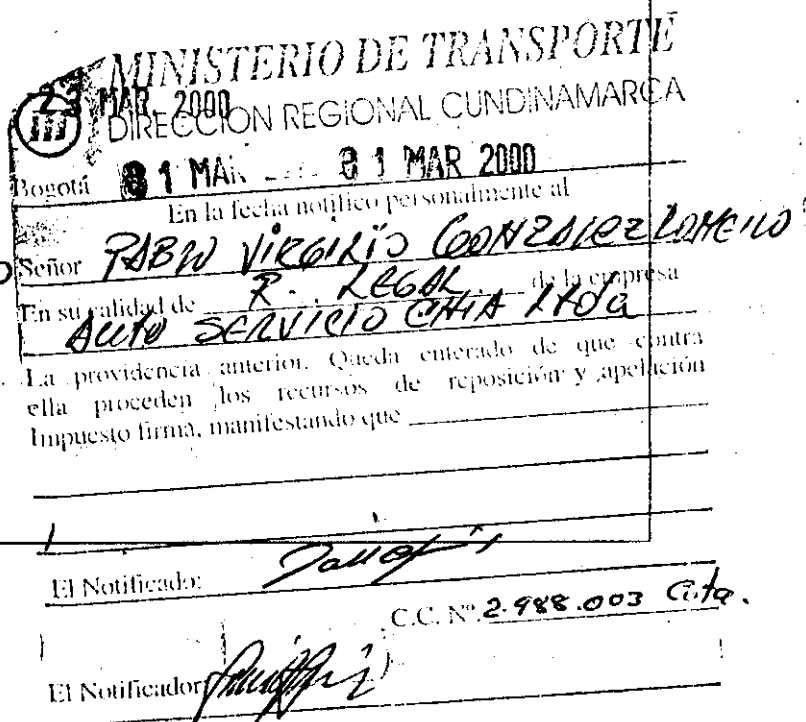 MINISTERIO DE TRANSPORTE
23 MAR. 2000
DIRECCION REGIONAL CUNDINAMARCA
Bogotá 31 MAR 31 MAR 2000
En la fecha notifico personalmente al
Señor PABLO VIRGILIO GONZALEZ
En su calidad de R. LEGAL de la empresa
AUTO SERVICIO CHIA Ltda
La providencia anterior. Queda enterado de que contra
ella proceden los recursos de reposición y apelación
Impuesto firma, manifestando que
El Notificado:
C.C. Nº 2.988.003
El Notificador